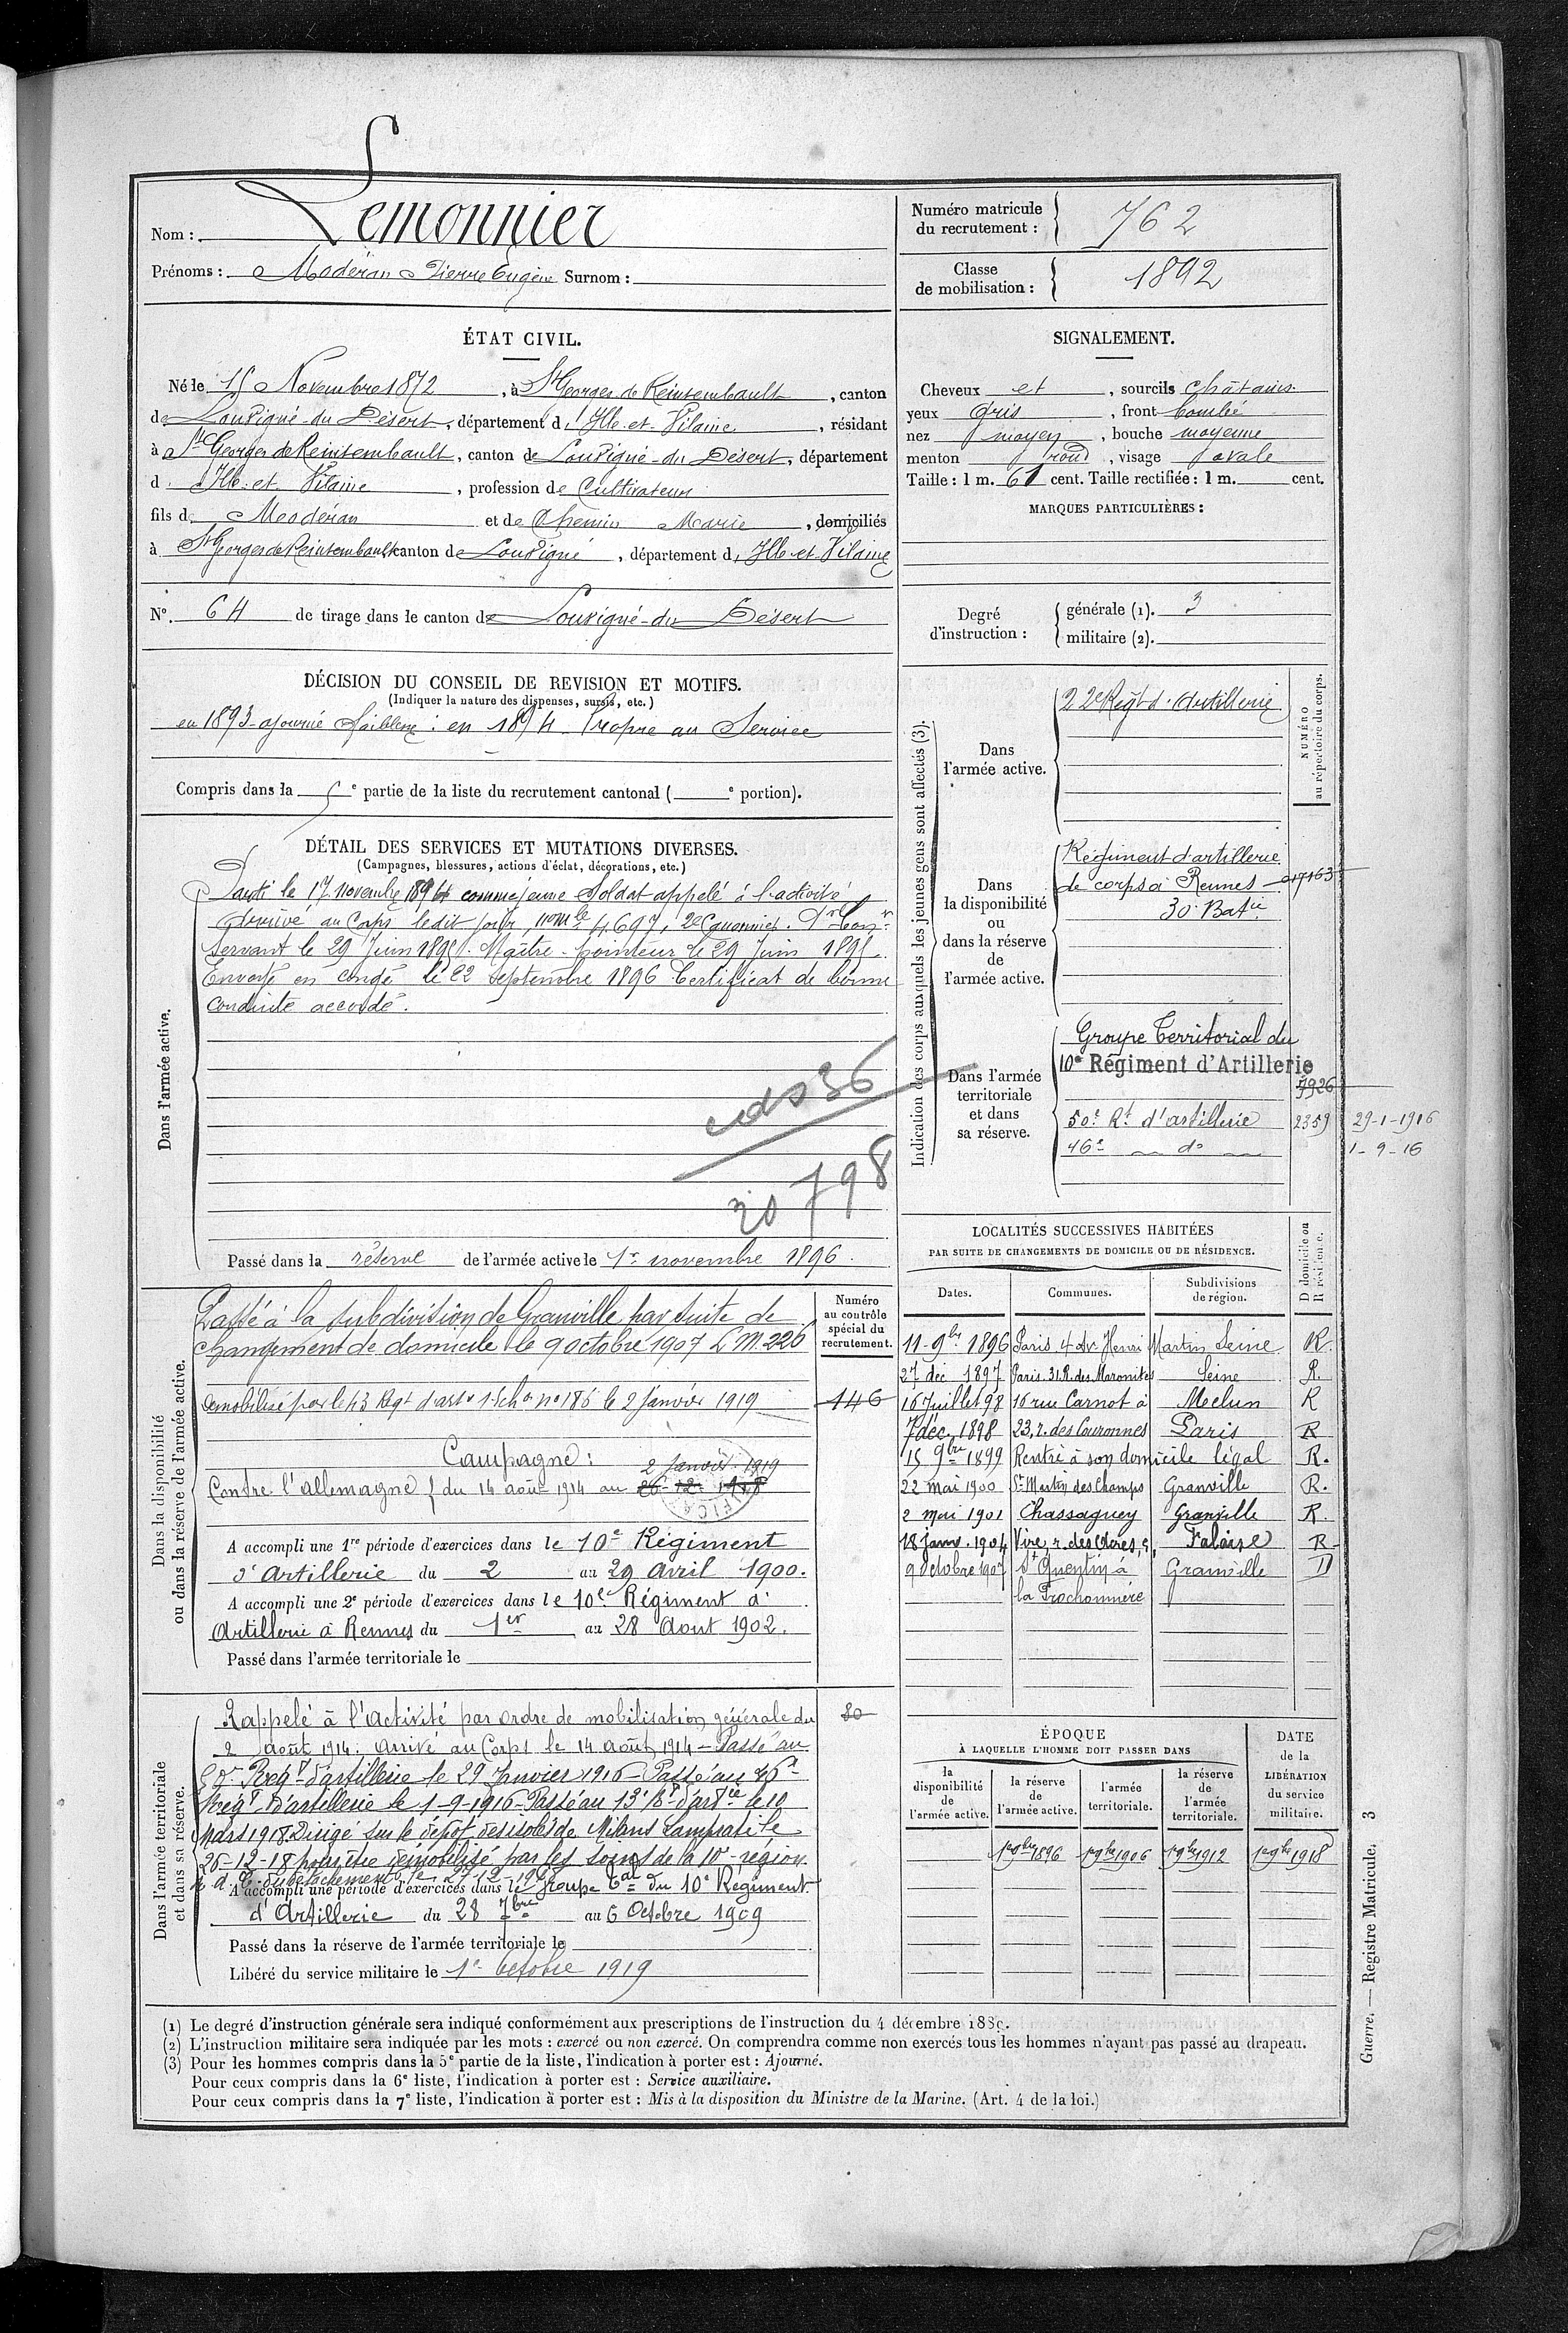 Nom : Lemonnier
Prénoms : Modéran Pierre Eugène Surnom :
Numéro matricule du recrutement : 762
Classe de mobilisation : 1892
ÉTAT CIVIL.
Né le 15 Novembre 1872, à St Georges de Reintembault, canton
de Louvigné-du-Désert, département d'Ille-et-Vilaine, résidant
à St Georges de Reintembault, canton de Louvigné-du-Désert, département
d'Ille-et-Vilaine, profession de Cultivateur
fils de Modéran et de Chemin Marie, domiciliés
à St Georges de Reintembault canton de Louvigné, département d'Ille-et-Vilaine
No. 64 de tirage dans le canton de Louvigné-du-Désert
SIGNALEMENT.
Cheveux et, sourcils châtains
yeux gris, front bombé
nez moyen, bouche moyenne
menton rond, visage ovale
Taille : 1 m. 61 cent. Taille rectifiée : 1 m. cent.
MARQUES PARTICULIÈRES :
Degré d'instruction : générale (1). 3
militaire (2).
DÉCISION DU CONSEIL DE REVISION ET MOTIFS.
(Indiquer la nature des dispenses, sursis, etc.)
en 1893 ajourné faiblesse : en 1894 Propre au Service
Compris dans la 5e partie de la liste du recrutement cantonal ( e portion).
DÉTAIL DES SERVICES ET MUTATIONS DIVERSES.
(Campagnes, blessures, actions d'éclat, décorations, etc.)
Dans l'armée active.
Parti le 17 novembre 1894 comme jeune Soldat appelé à l'activité
Arrivé au Corps ledit jour, no mle 4697, 2e Canonnier. 1er Canr
Servant le 29 Juin 1895. Maître-pointeur le 29 Juin 1895.
Envoyé en congé le 22 septembre 1896 Certificat de bonne
conduite accordé.
30798
Passé dans la réserve de l'armée active le 1er novembre 1896.
Indication des corps auxquels les jeunes gens sont affectés (3).
NUMÉRO au répertoire du corps.
Dans l'armée active.
22e Régt d'Artillerie
Dans la disponibilité ou dans la réserve de l'armée active.
Régiment d'artillerie
de corps à Rennes
30e Batie
Dans l'armée territoriale et dans sa réserve.
Groupe Territorial du
10e Régiment d'Artillerie
7926
50e Rt d'artillerie 2359 29-1-1916
46e do 1-9-16
Dans la disponibilité ou dans la réserve de l'armée active.
Numéro au contrôle spécial du recrutement.
Passé à la subdivision de Granville par suite de
changement de domicile le 9 octobre 1907 L M. 226
Démobilisé par le 13 Regt d'arte 1er échon no 186 le 2 Janvier 1919 146
Campagne :
2 Janvier 1919
Contre l'allemagne du 14 août 1914 au 26-12-1918
A accompli une 1re période d'exercices dans le 10e Régiment
d'Artillerie du 2 au 29 avril 1900.
A accompli une 2e période d'exercices dans le 10e Régiment d'
Artillerie à Rennes du 1er au 28 Aout 1902.
Passé dans l'armée territoriale le
LOCALITÉS SUCCESSIVES HABITÉES
PAR SUITE DE CHANGEMENTS DE DOMICILE OU DE RÉSIDENCE.
Dates. Communes. Subdivisions de région. Domicile ou Résidence.
11-9bre 1896 Paris 4 Av Henri Martin Seine R.
27 déc 1897 Paris. 31 R. des Maronites Seine R.
16 Juillet 98 16 rue Carnot à Melun R
7 déc. 1898 23, r. des Couronnes Paris R
15 9bre 1899 Rentré à son domicile légal R.
22 mai 1900 St Martin des Champs Granville R.
2 mai 1901 Chassaguey Granville R.
18 janv. 1904 Vire, r. des Acres, 5, Falaise R
9 Octobre 1907 St Quentin à Granville D
la Trochonnière
Dans l'armée territoriale et dans sa réserve.
Rappelé à l'activité par ordre de mobilisation générale du 80
2 août 1914. Arrivé au Corps le 14 août 1914 - Passé au
50e Regt d'artillerie le 29 Janvier 1916 - Passé au 46e
Régt d'artillerie le 1-9-1916 - Passé au 13e Rt d'artie le 10
Mars 1918 Dirigé sur le dépôt des isolés de
26-12-18 pour être démobilisé par les soins de la 10e région
A accompli une période d'exercices dans le Groupe Tal du 10e Régiment
d'Artillerie du 28 7bre au 6 Octobre 1909
Passé dans la réserve de l'armée territoriale le
Libéré du service militaire le 1er Octobre 1919
ÉPOQUE
À LAQUELLE L'HOMME DOIT PASSER DANS
la disponibilité de l'armée active. la réserve de l'armée active. l'armée territoriale. la réserve de l'armée territoriale.
DATE de la LIBÉRATION du service militaire.
1er 9bre 1896 1er 9bre 1906 1er 9bre 1912 1er 9bre 1918
(1) Le degré d'instruction générale sera indiqué conformément aux prescriptions de l'instruction du 4 décembre 1889.
(2) L'instruction militaire sera indiquée par les mots : exercé ou non exercé. On comprendra comme non exercés tous les hommes n'ayant pas passé au drapeau.
(3) Pour les hommes compris dans la 5e partie de la liste, l'indication à porter est : Ajourné.
Pour ceux compris dans la 6e liste, l'indication à porter est : Service auxiliaire.
Pour ceux compris dans la 7e liste, l'indication à porter est : Mis à la disposition du Ministre de la Marine. (Art. 4 de la loi.)
Guerre. — Registre Matricule. 3